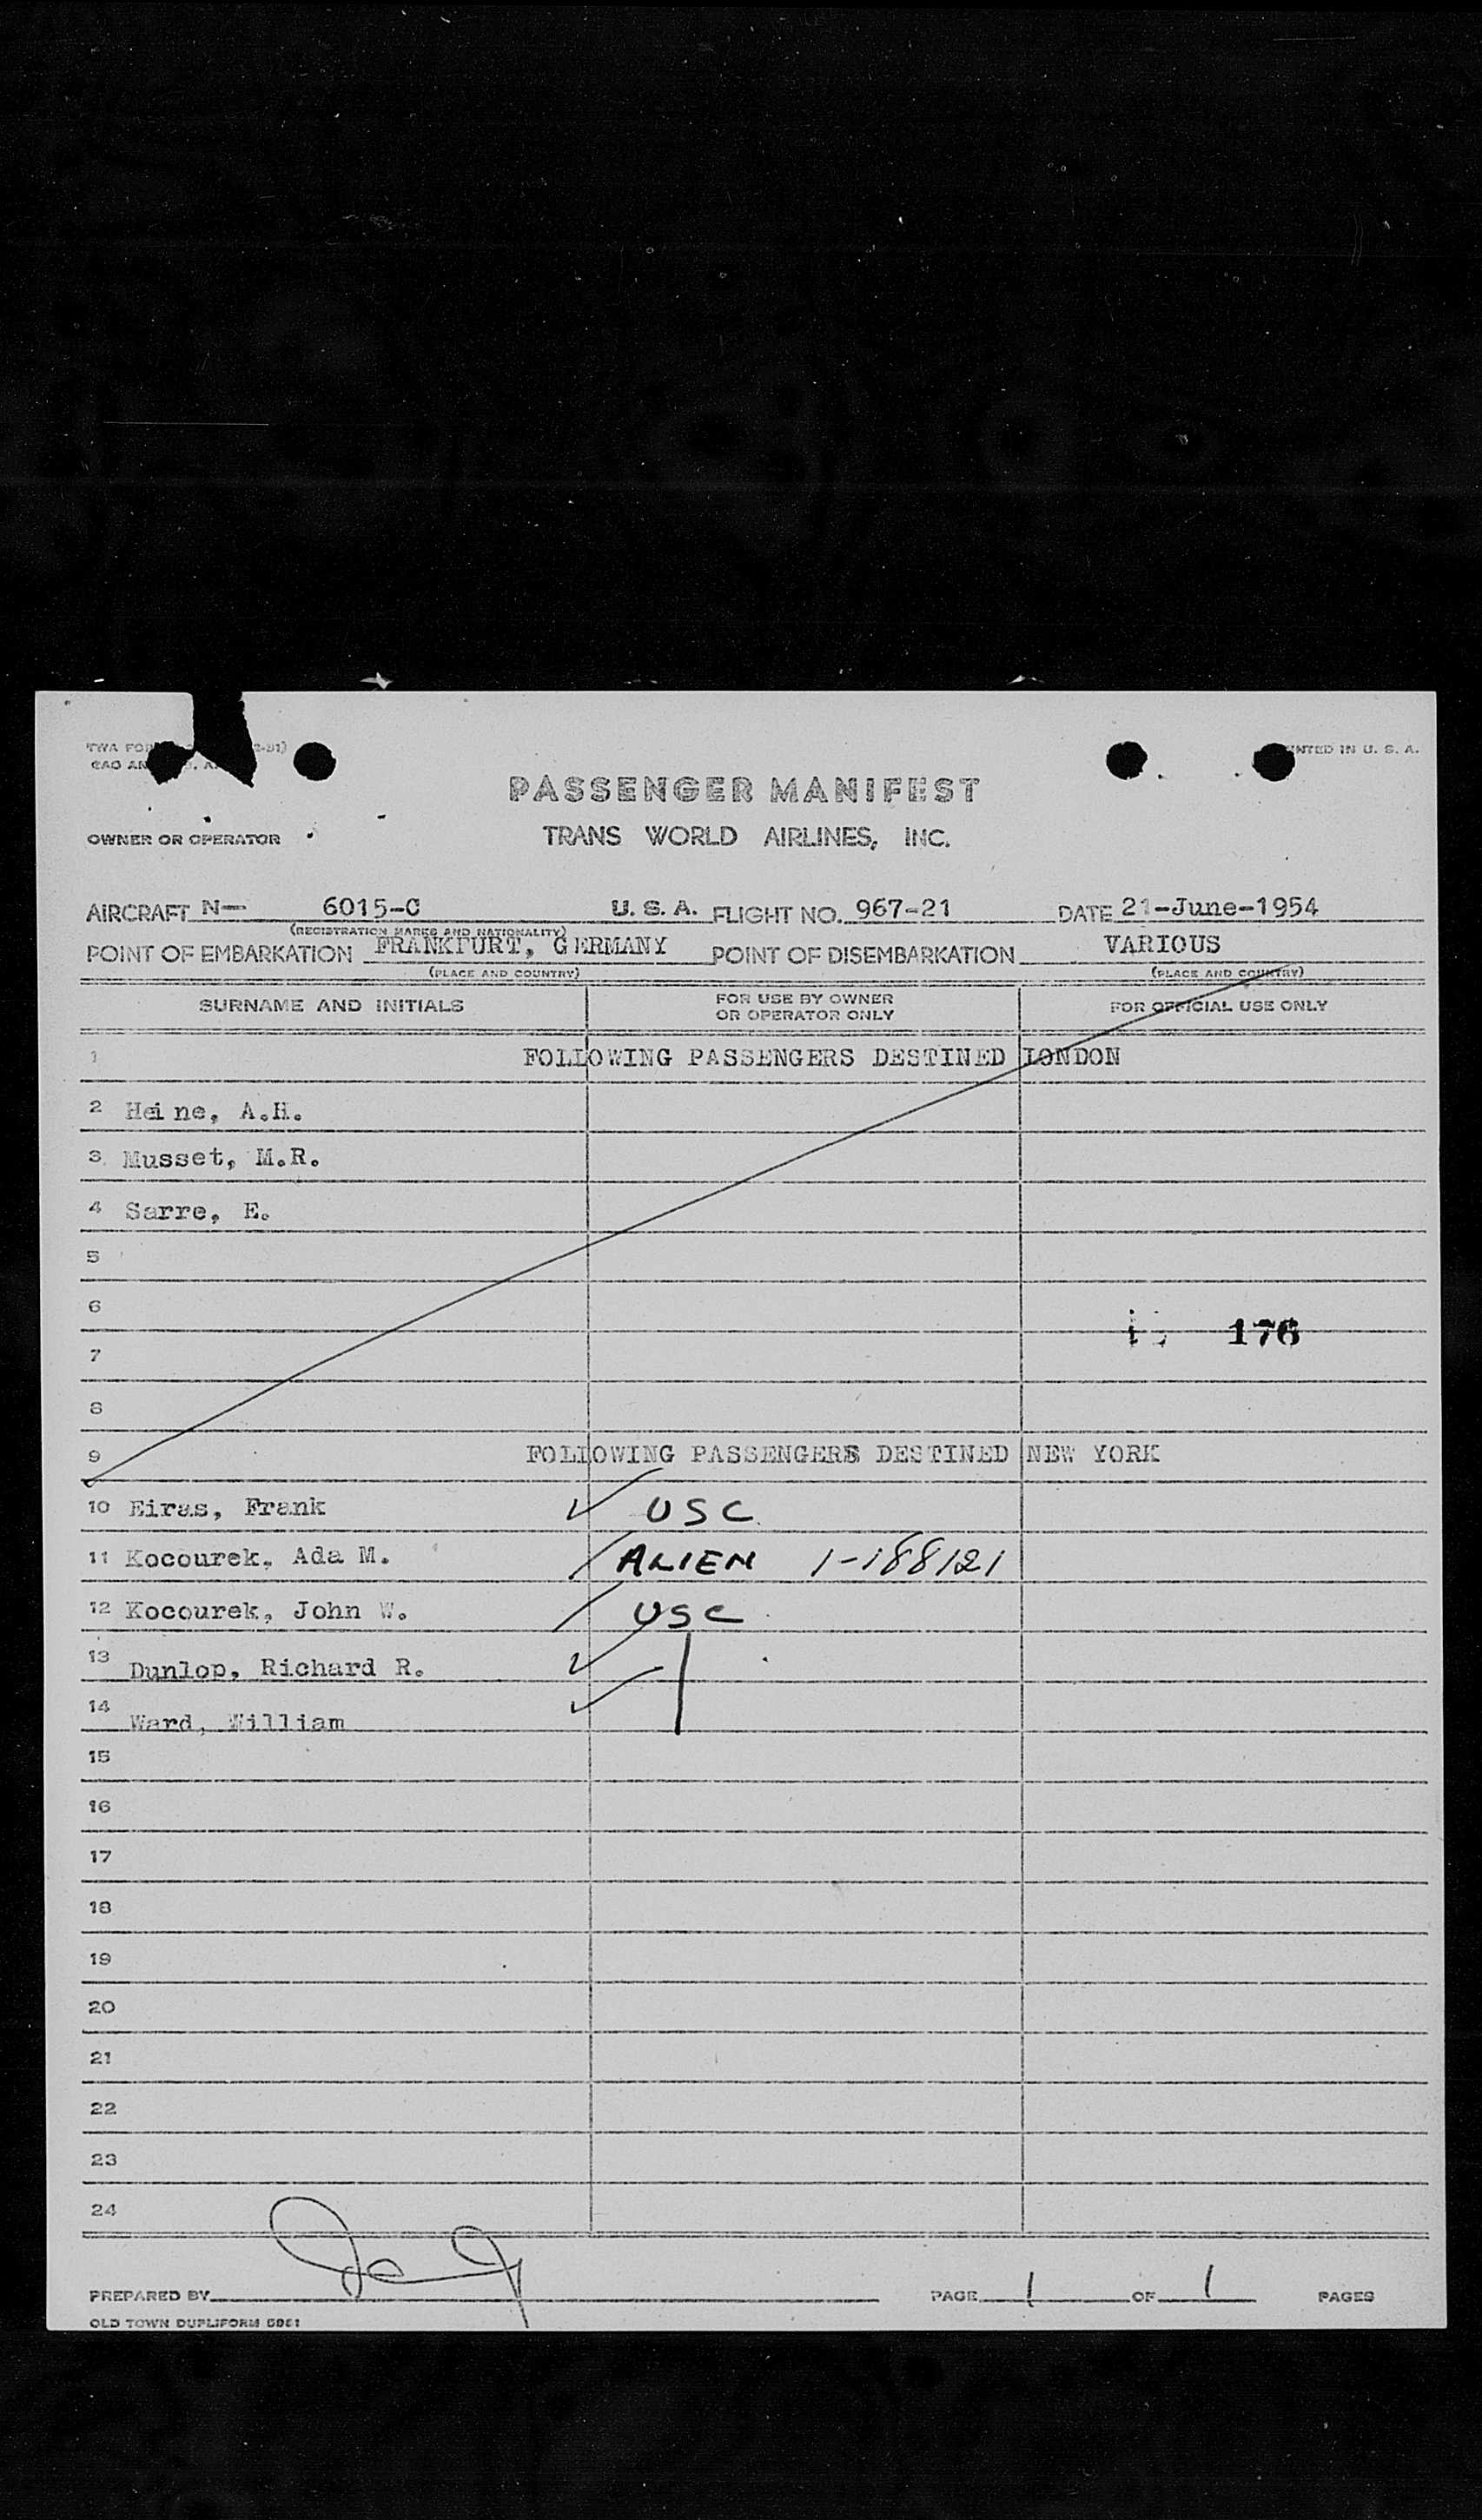 TWA FOR 2-51)
PRINTED IN U. S. A.
CAO AN
PASSENGER MANIFEST
OWNER OR OPERATOR TRANS WORLD AIRLINES, INC.
AIRCRAFT N— 6015-C U. S. A. FLIGHT NO. 967-21 DATE 21-June-1954
(REGISTRATION MARKS AND NATIONALITY)
POINT OF EMBARKATION FRANKFURT, GERMANY POINT OF DISEMBARKATION VARIOUS
(PLACE AND COUNTRY) (PLACE AND COUNTRY)
SURNAME AND INITIALS FOR USE BY OWNER OR OPERATOR ONLY FOR OFFICIAL USE ONLY
1 FOLLOWING PASSENGERS DESTINED LONDON
2 Heine, A.H.
3 Musset, M.R.
4 Sarre, E.
5
6
176
7
8
9 FOLLOWING PASSENGERS DESTINED NEW YORK
10 Eiras, Frank USC
11 Kocourek, Ada M. ALIEN 1-188121
12 Kocourek, John W. USC
13 Dunlop, Richard R.
14 Ward, William
15
16
17
18
19
20
21
22
23
24
PREPARED BY PAGE 1 OF 1 PAGES
OLD TOWN DUPLIFORM